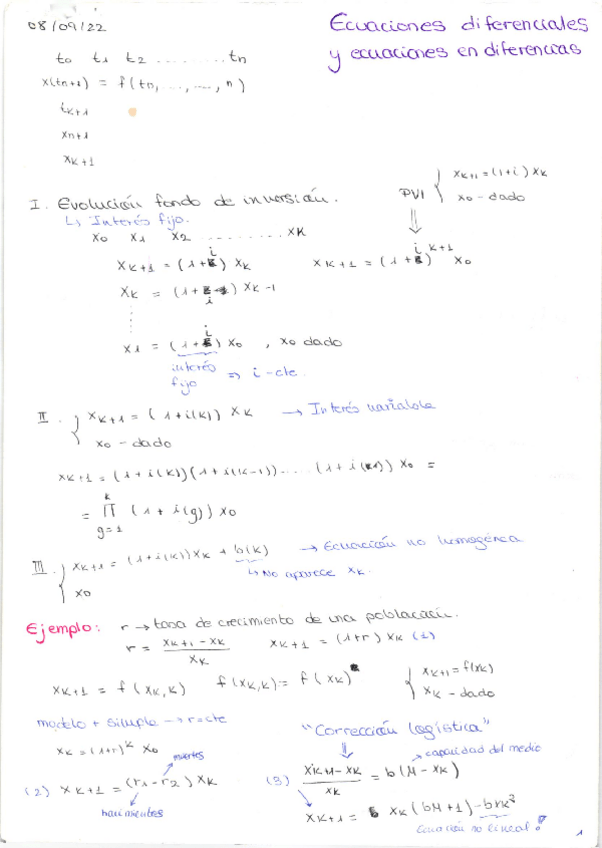 08/09/22
Ecuaciones diferenciales
y ecuaciones en diferencias
t₀ t₁ t₂ ......... tₙ
x(tₙ₊₁) = f(tₙ, ..., ..., n)
tₖ₊₁
xₙ₊₁
xₖ₊₁
PVI { xₖ₊₁ = (1+i) xₖ
x₀ - dado
I. Evolución fondo de inversión.
↳ Interés fijo.
x₀ x₁ x₂ ......... xₖ
xₖ₊₁ = (1+i) xₖ
xₖ₊₁ = (1+i)ᵏ⁺¹ x₀
xₖ = (1+i) xₖ₋₁
x₁ = (1+i) x₀ , x₀ dado
interés fijo ⇒ i - cte.
II. { xₖ₊₁ = (1+i(k)) xₖ → Interés variable
x₀ - dado
xₖ₊₁ = (1+i(k))(1+i(k-1)) ..... (1+i(1)) x₀ =
= ∏ᵏg=1 (1+i(g)) x₀
III. { xₖ₊₁ = (1+i(k)) xₖ + b(k) → Ecuación no homogénea
↳ No aparece xₖ.
x₀
Ejemplo: r → tasa de crecimiento de una poblacación.
r = (xₖ₊₁ - xₖ)/xₖ xₖ₊₁ = (1+r) xₖ (1)
xₖ₊₁ = f(xₖ, k) f(xₖ, k) = f(xₖ)
{ xₖ₊₁ = f(xₖ)
xₖ - dado
modelo + simple → r = cte
xₖ = (1+r)ᵏ x₀
muertes
(2) xₖ₊₁ = (r₁ - r₂) xₖ
nacimientos
"Corrección logística"
capacidad del medio
(3) (xₖ₊₁ - xₖ)/xₖ = b(M - xₖ)
xₖ₊₁ = xₖ(bM+1) - bxₖ²
Ecuación no lineal!
1